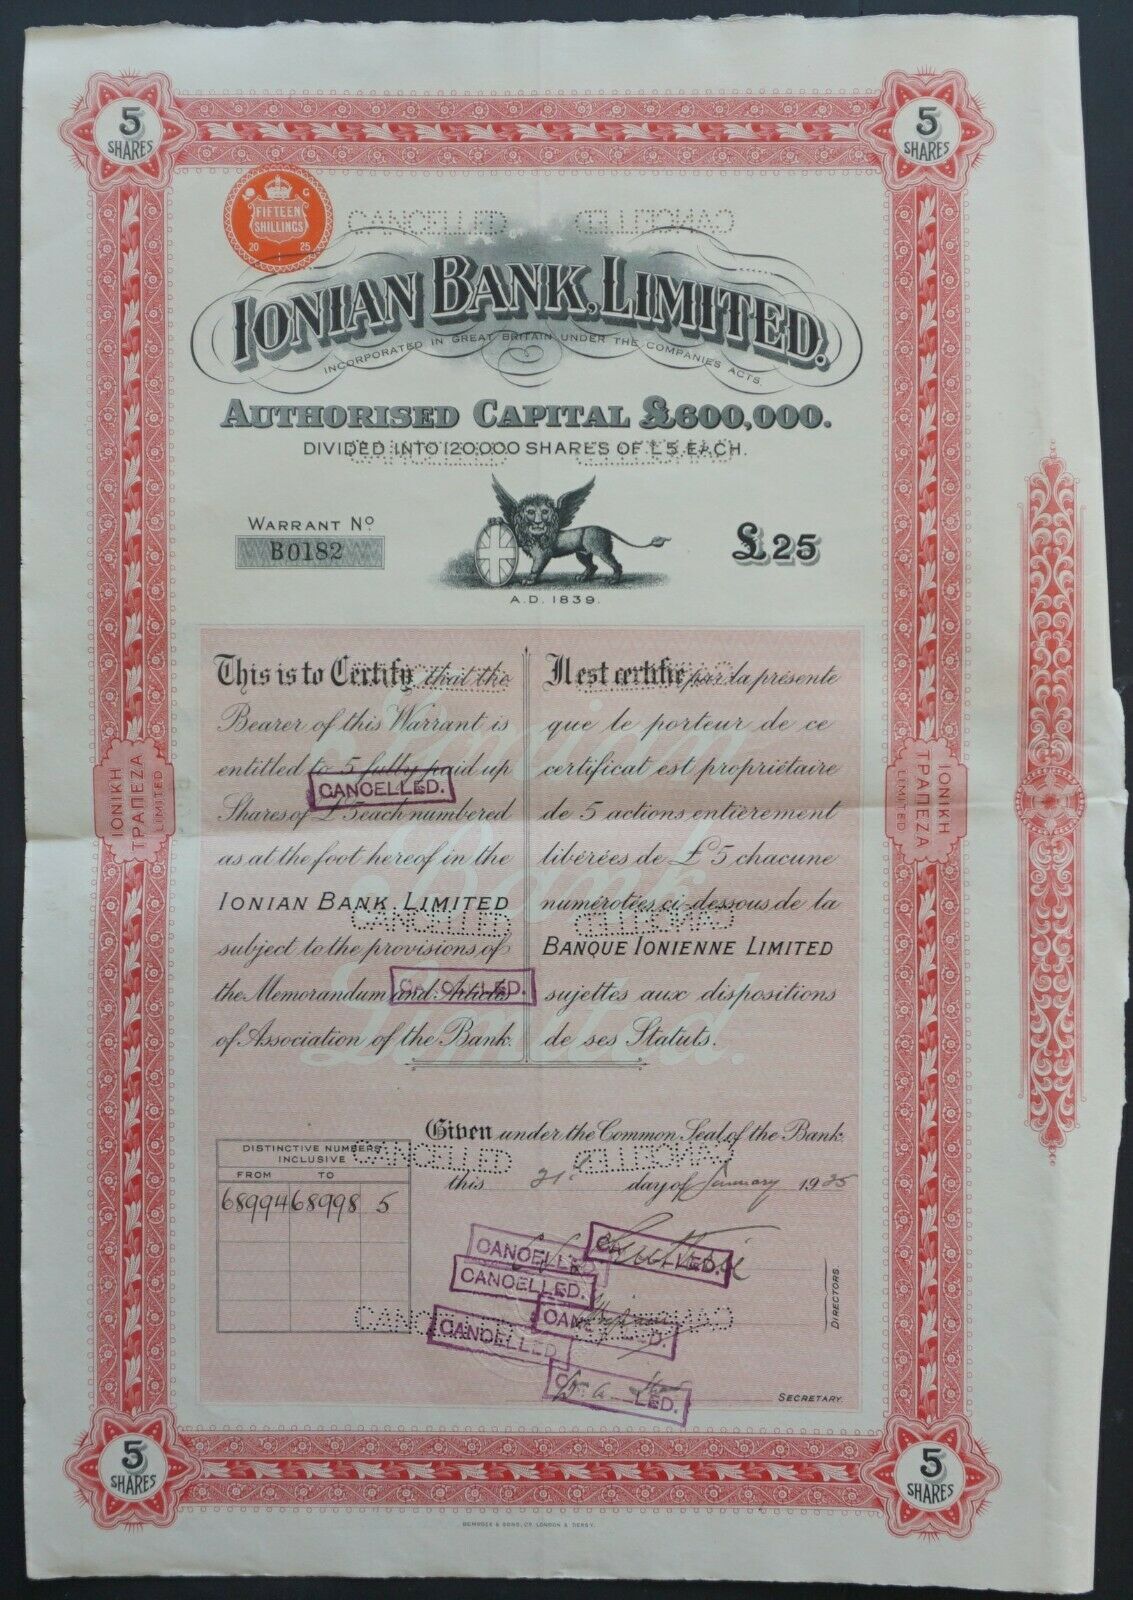 5
SHARES
5
SHARES
G
FIFTEEN
SHILLINGS
20 25
CANCELLED CANCELLED
IONIAN BANK, LIMITED.
INCORPORATED IN GREAT BRITAIN UNDER THE COMPANIES ACTS
AUTHORISED CAPITAL £600,000.
DIVIDED INTO 120,000 SHARES OF £5 EACH.
CANCELLED CANCELLED
WARRANT No
B0182
£25
A.D. 1839.
This is to Certify that the
Bearer of this Warrant is
entitled to 5 fully paid up
CANCELLED.
Shares of £5 each numbered
as at the foot hereof in the
IONIAN BANK, LIMITED
subject to the provisions of
the Memorandum and Articles
CANCELLED.
of Association of the Bank.
Il est certifié par la présente
que le porteur de ce
certificat est propriétaire
de 5 actions entièrement
libérées de £5 chacune
numérotées ci-dessous de la
BANQUE IONIENNE LIMITED
sujettes aux dispositions
de ses Statuts.
CANCELLED CANCELLED
CANCELLED CANCELLED
Ionian
Bank
Limited.
ΙΟΝΙΚΗ
ΤΡΑΠΕΖΑ
LIMITED
ΙΟΝΙΚΗ
ΤΡΑΠΕΖΑ
LIMITED
Given under the Common Seal of the Bank.
CANCELLED CANCELLED
this 21st day of January 1925
DISTINCTIVE NUMBERS
INCLUSIVE
FROM TO
68994 68998 5
CANCELLED.
CANCELLED.
CANCELLED.
CANCELLED.
CANCELLED.
CANCELLED.
CANCELLED CANCELLED
DIRECTORS.
SECRETARY.
5
SHARES
5
SHARES
BEMROSE & SONS, LD. LONDON & DERBY.